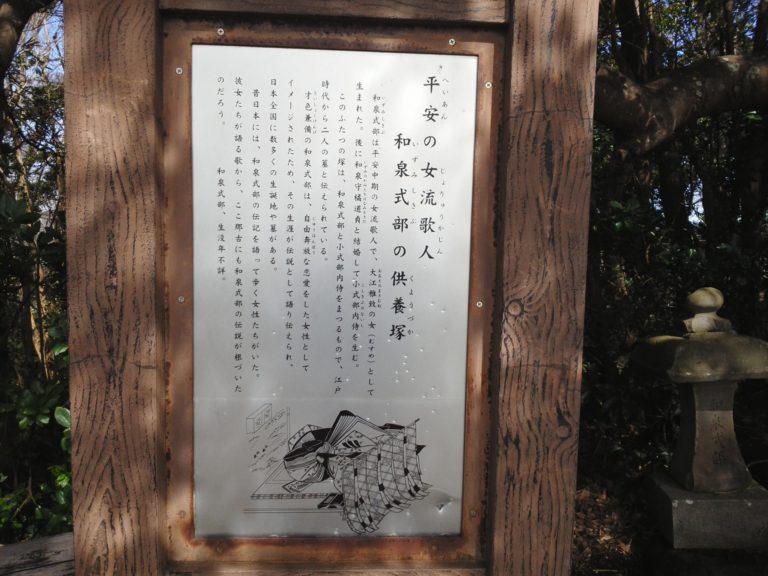 平安の女流歌人
へいあん じょりゅうかじん
和泉式部の供養塚
いずみしきぶ くようづか
和泉式部は平安中期の女流歌人で、大江雅致の女(むすめ)として
生まれた。後に和泉守橘道貞と結婚して小式部内侍を生む。
このふたつの塚は、和泉式部と小式部内侍をまつるもので、江戸
時代から二人の墓と伝えられている。
才色兼備の和泉式部は、自由奔放な恋愛をした女性として
イメージされたため、その生涯が伝説として語り伝えられ、
日本全国に数多くの生誕地や墓がある。
昔日本には、和泉式部の伝記を語って歩く女性たちがいた。
彼女たちが語る歌から、ここ那古にも和泉式部の伝説が根づいた
のだろう。
和泉式部、生没年不詳。
和泉式部